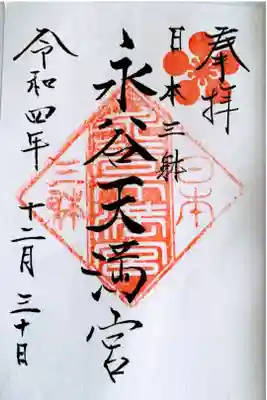 奉拝
日本三躰
永谷天満宮
令和四年 十二月 三十日
日本
三躰